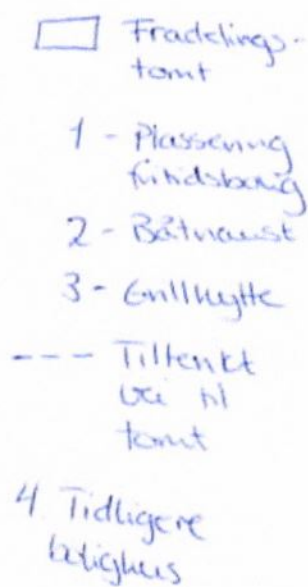 Fradelings-
tomt
1 - Plassering
fritidsbolig
2 - Båtnaust
3 - Grillhytte
--- Tiltenkt
vei til
tomt
4 Tidligere
bolighus